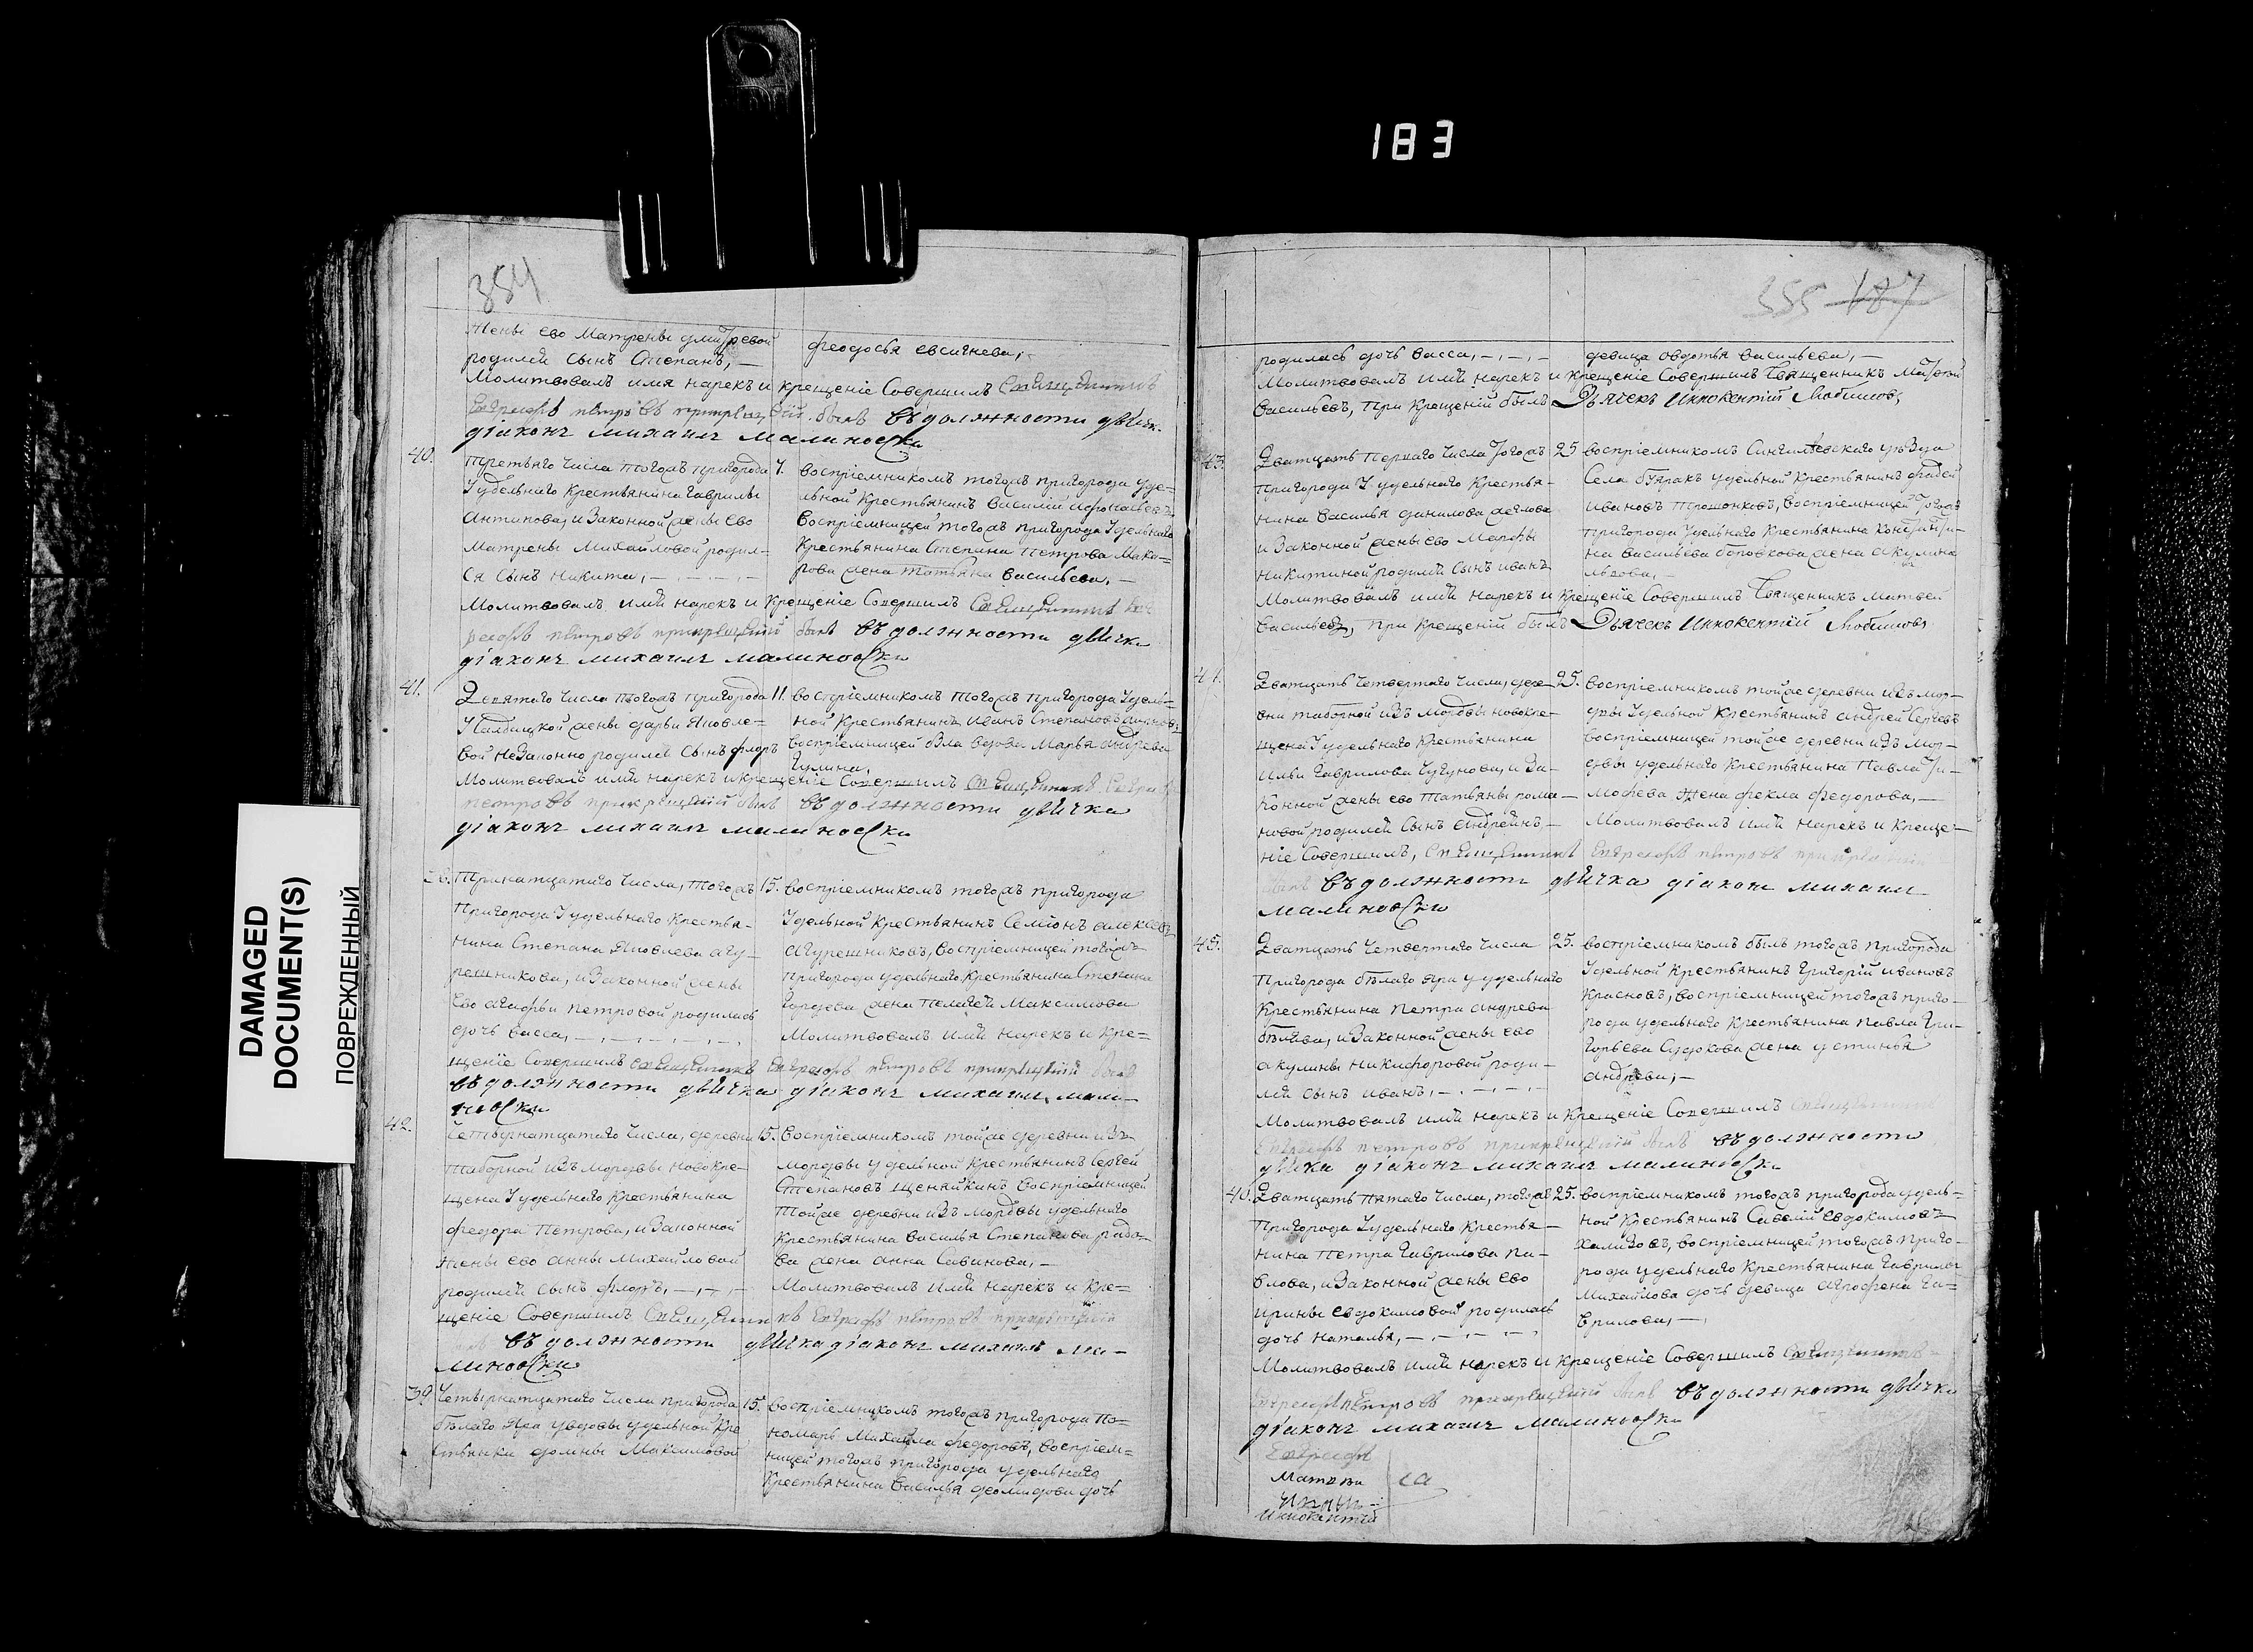 183
DAMAGED
DOCUMENT(S)
ПОВРЕЖДЕННЫЙ
354
жены ево Матрены дмитревой
родился сынъ Степанъ, —
феодосья евсигнева, —
Молитвовалъ имя нарекъ и крещенiе Совершилъ Священникъ
Евграфъ петровъ при крещенiи былъ въ должности дьячка
дiаконъ михаилъ малиновски
40.
третьяго числа тогожъ пригорода
Удельнаго крестьянина Гаврилы
Антипова, и законной жены ево
Матрены Михайловой родил-
ся сынъ никита, —
7.
воспрiемникомъ тогожъ пригорода уде-
льной крестьянинъ василiй
воспрiемницей тогожъ пригорода удельнаго
крестьянина Степана петрова Мака-
рова жена татьяна васильева, —
Молитвовалъ имя нарекъ и крещенiе Совершилъ Священникъ Евг
рафъ петровъ при крещенiи былъ въ должности дьячка
дiаконъ михаилъ малиновски
41.
Девятаго числа тогожъ пригорода
жены дарьи Яковле-
вой незаконно родился сынъ флоръ
11.
воспрiемникомъ тогожъ пригорода Удель-
ной крестьянинъ иванъ Степановъ
воспрiемницей была вдова Марья андрева
Молитвовалъ имя нарекъ и крещенiе Совершилъ Священникъ Евграфъ
петровъ при крещенiи былъ въ должности дьячка
дiаконъ михаилъ малиновски
Тринатцатаго числа, тогожъ
пригорода Удельнаго крестья-
нина Степана Яковлева агу-
решникова, и законной жены
ево агафьи петровой родилась
дочь васса, —
15.
воспрiемникомъ тогожъ пригорода
Удельной крестьянинъ Семiонъ алексевъ
агурешниковъ, воспрiемницей тогожъ
пригорода удельнаго крестьянина Степана
Гордева жена пелагея Максимова
Молитвовалъ имя нарекъ и кре=
щенiе Совершилъ Священникъ Евграфъ петровъ при крещенiи былъ
въ должности дьячка дiаконъ михаилъ мали-
новски
42.
четырнатцатаго числа, деревни
таборной изъ мордвы новокре-
щена Удельнаго крестьянина
федора петрова, и законной
жены ево анны Михайловой
родился сынъ флоръ, —
15.
воспрiемникомъ тойже деревни изъ
мордвы удельной крестьянинъ Сергей
Степановъ щеняйкинъ воспрiемницей
тойже деревни изъ мордвы удельнаго
крестьянина василья Степанова
жена анна Савинова, —
Молитвовалъ имя нарекъ и кре=
щенiе Совершилъ Священникъ Евграфъ петровъ при крещенiи
былъ въ должности дьячка дiаконъ михаилъ ма-
линовски
39.
Четырнатцатаго числа пригорода
белаго Яра увдовы удельной кре
стьянки домны Максимовой
15.
воспрiемникомъ тогожъ пригорода по=
номарь Михайла федоровъ, воспрiем=
ницей тогожъ пригорода удельнаго
крестьянина василья деомидова дочь
355 187
родилась дочь васса, —
девица авдотья васильева, —
Молитвовалъ имя нарекъ и крещенiе Совершилъ Священникъ Матвей
васильевъ, при крещенiй былъ Дьячекъ Иннокентiй Любимовъ,
43.
Дватцать перваго числа тогожъ
пригорода Удельнаго крестья-
нина василья данилова
и законной жены ево Марфы
никитиной родился сынъ иванъ
25
воспрiемникомъ Сингилевскаго уезда
Села буяракъ удельной крестьянинъ фадей
ивановъ трошонковъ, воспрiемницей тогожъ
пригорода удельнаго крестьянина константи-
на васильева жена акулина
львова, —
Молитвовалъ имя нарекъ и крещенiе Совершилъ Священникъ матвей
васильевъ, при крещенiй былъ Дьячекъ Иннокентiй Любимовъ
Дватцать четвертаго числа, дере-
вни таборной изъ мордвы новокре-
щена Удельнаго крестьянина
ильи Гаврилова Чугунова, и за-
конной жены ево татьяны рома-
новой родился сынъ андреянъ, —
25.
воспрiемникомъ тойже деревни изъ мор-
двы Удельной крестьянинъ андрей Сергевъ
воспрiемницей тойже деревни изъ мор-
двы удельнаго крестьянина павла ти-
мофева жена фекла федорова, —
Молитвовалъ имя нарекъ и креще-
нiе Совершилъ, Священникъ Евграфъ петровъ при крещенiи
былъ въ должности дьячка дiаконъ михаилъ
малиновски
45.
Дватцать четвертаго числа
пригорода белаго Яра у удельнаго
крестьянина петра андрева
беляева, и законной жены ево
акулины никифоровой роди-
лся сынъ иванъ, —
25.
воспрiемникомъ былъ тогожъ пригорода
Удельной крестьянинъ Григорiй ивановъ
красновъ, воспрiемницей тогожъ приго-
рода удельнаго крестьянина павла Гри-
горьева Судокова жена устинья
андрева, —
Молитвовалъ имя нарекъ и крещенiе Совершилъ Священникъ
Евграфъ петровъ при крещенiи былъ въ должности
дьячка дiаконъ михаилъ малиновски
Дватцать пятаго числа, тогожъ
пригорода Удельнаго крестья-
нина петра Гаврилова па-
влова, и законной жены ево
ирины евдокимовой родилась
дочь наталья, —
25.
воспрiемникомъ тогожъ пригорода удель-
ной крестьянинъ Савелiй евдокимовъ
воспрiемницей тогожъ приго-
рода удельнаго крестьянина Гаврилы
Михайлова дочь девица аграфена Га=
врилова, —
Молитвовалъ имя нарекъ и крещенiе Совершилъ Священникъ
Евграфъ петровъ при крещенiи былъ въ должности дьячка
дiаконъ михаилъ малиновски
Евграфъ
Матвеи
Иннокентiй